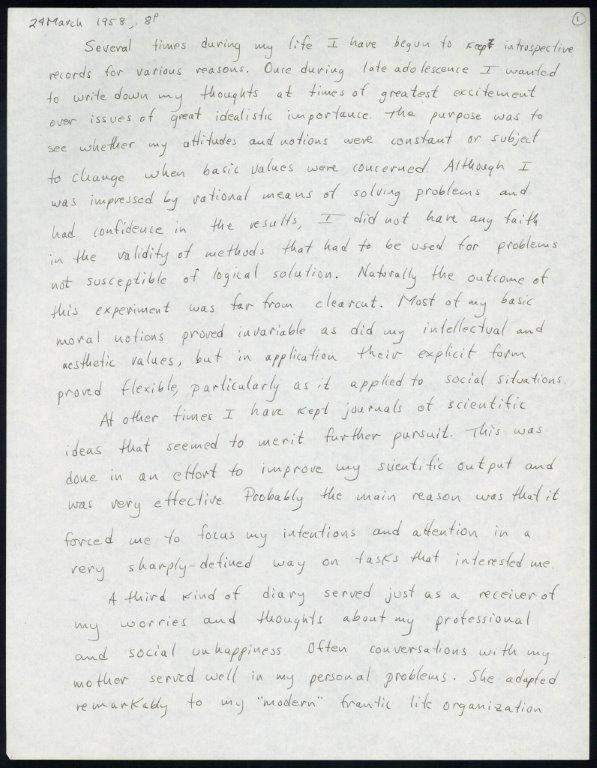 24 March 1958, 8P
1
Several times during my life I have begun to keep introspective
records for various reasons. Once during late adolescence I wanted
to write down my thoughts at times of greatest excitement
over issues of great idealistic importance. The purpose was to
see whether my attitudes and notions were constant or subject
to change when basic values were concerned. Although I
was impressed by rational means of solving problems and
had confidence in the results, I did not have any faith
in the validity of methods that had to be used for problems
not susceptible of logical solution. Naturally the outcome of
this experiment was far from clearcut. Most of my basic
moral notions proved invariable as did my intellectual and
aesthetic values, but in application their explicit form
proved flexible, particularly as it applied to social situations.
At other times I have kept journals of scientific
ideas that seemed to merit further pursuit. This was
done in an effort to improve my scientific output and
was very effective. Probably the main reason was that it
forced me to focus my intentions and attention in a
very sharply-defined way on tasks that interested me.
A third kind of diary served just as a receiver of
my worries and thoughts about my professional
and social unhappiness. Often conversations with my
mother served well in my personal problems. She adapted
remarkably to my "modern" frantic life organization